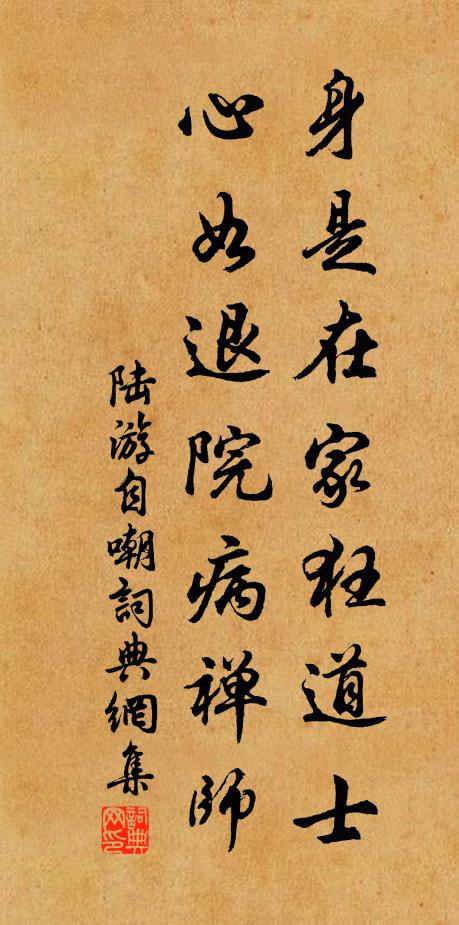 身是在家狂道士
心如退院病禅師
陆游自嘲詞典網集
詞典網印